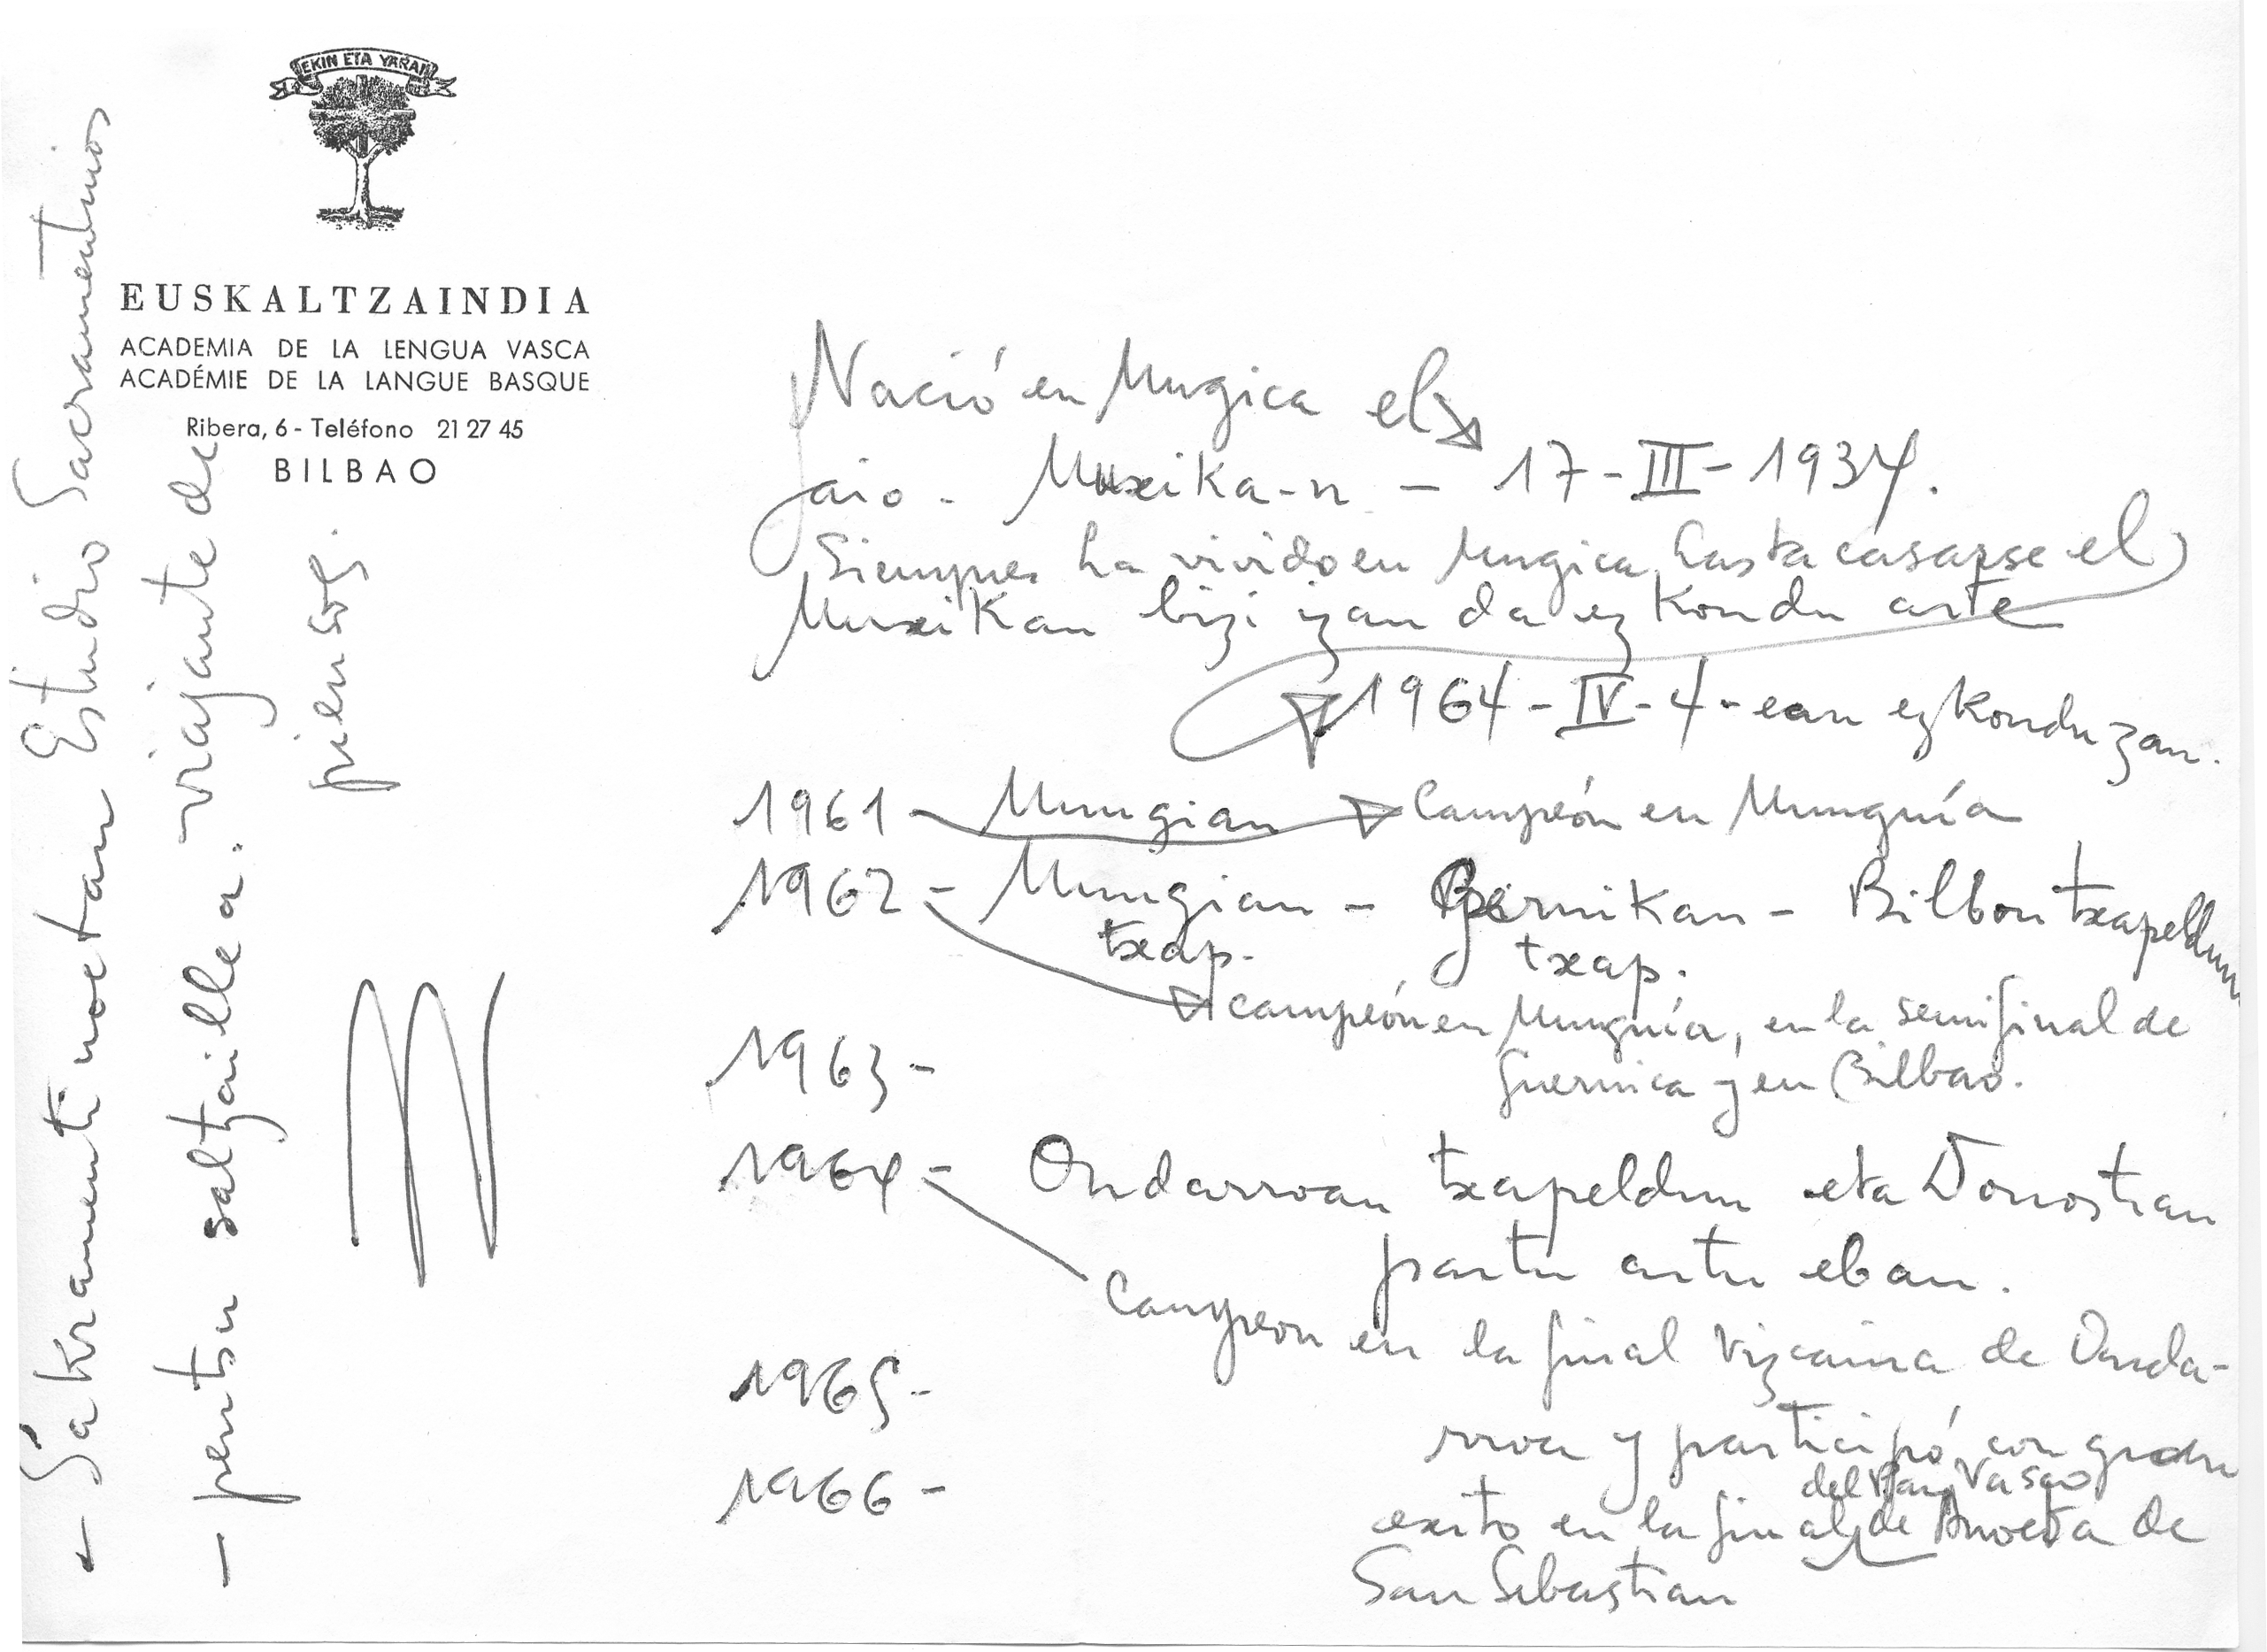 EKIN ETA YARAI
EUSKALTZAINDIA
ACADEMIA DE LA LENGUA VASCA
ACADÉMIE DE LA LANGUE BASQUE
Ribera, 6 - Teléfono 21 27 45
BILBAO
Nació en Mugica el
jaio - Muxika-n - 17-III-1934.
Siempre ha vivido en Mugica, hasta casarse el
Muxikan bizi izan da ezkondu arte
1964-IV-4-ean ezkondu zan.
1961 - Mungian Campeón en Munguía
1962 - Mungian - Gernikan - Bilbon txapeldun
txap. txap.
campeón en Munguía, en la semifinal de
Guernica y en Bilbao.
1963 -
1964 - Ondarroan txapeldun eta Donostian
partu artu eban.
Campeon en la final Vizcaina de Onda-
rroa y participó con gran
del Pais Vasco
exito en la final de Anoeta de
San Sebastian
1965 -
1966 -
- Sakramentinoetan Estudio Sacramentinos
- pentsu saltzaillea. viajante de
piensos.